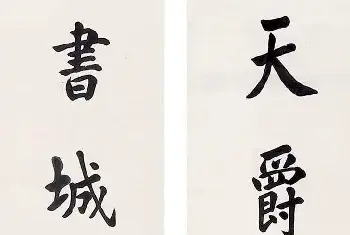 天爵
書城